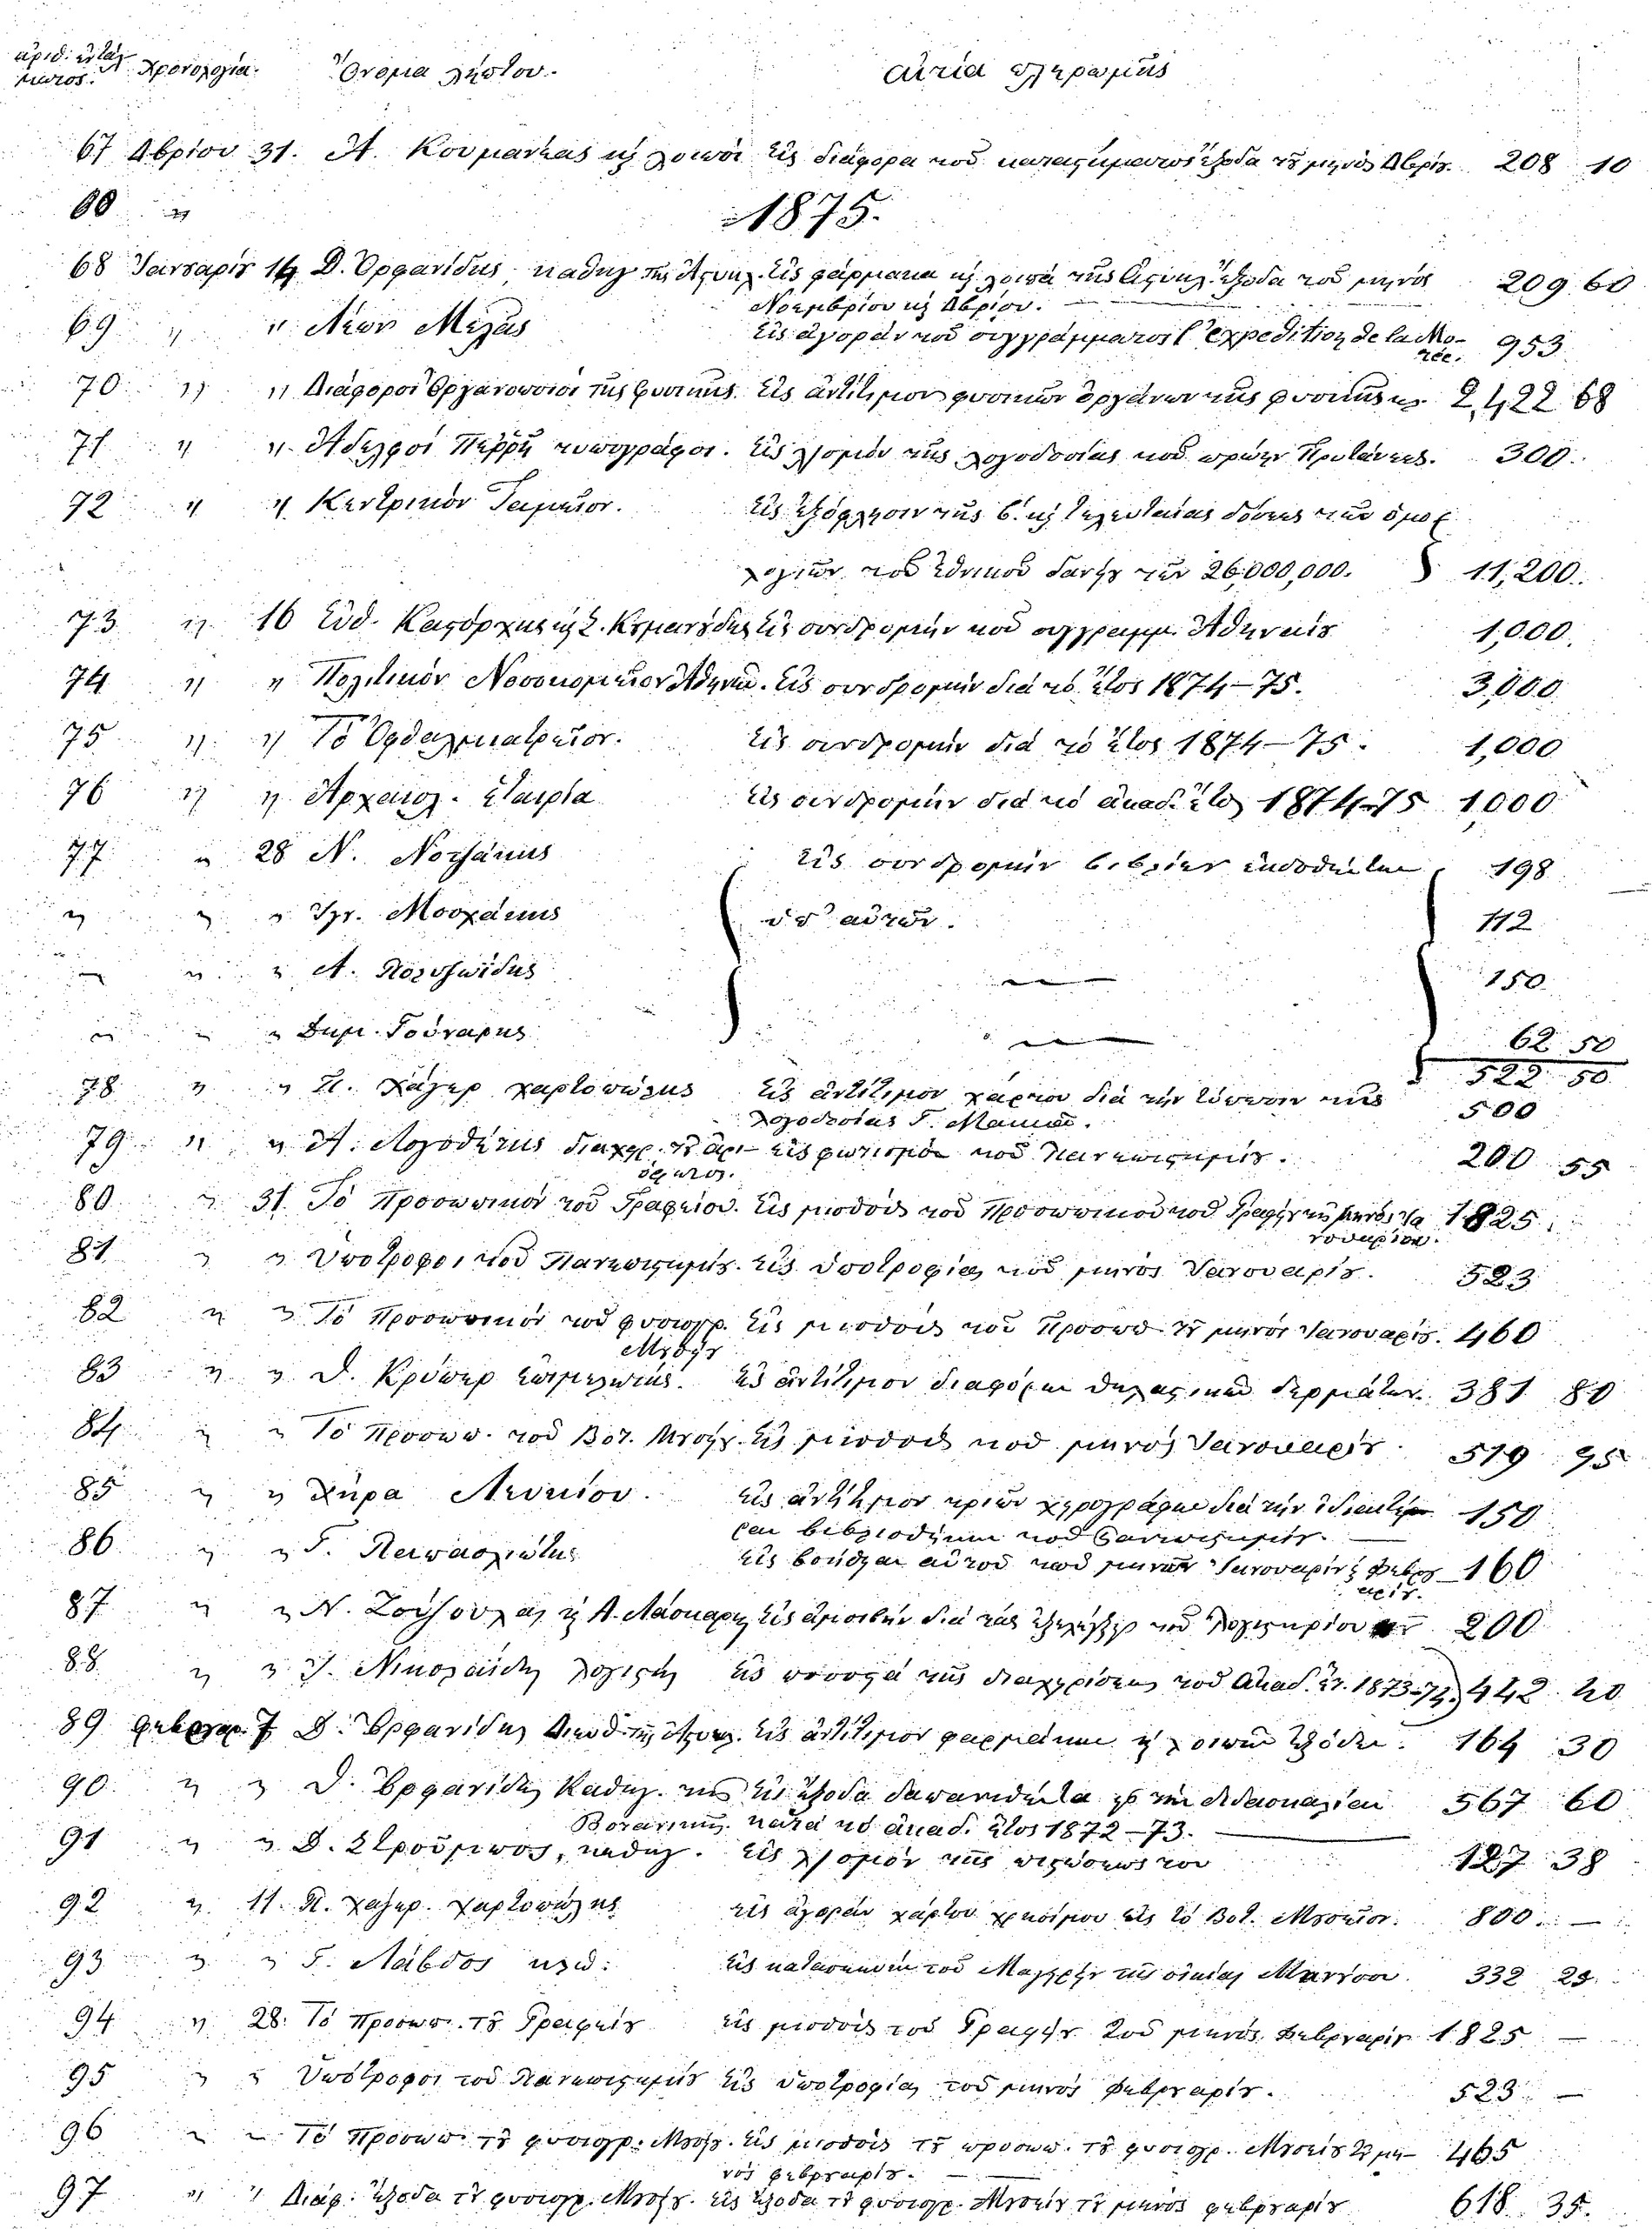 ἀριθ. ἐντάλ- Χρονολογία. Ὄνομα λήπτου. αἰτία πληρωμῆς
ματος.
67 Δβρίου 31. Α. Κουμανιας κ λοιποί εἰς διάφορα τοῦ καταστήματος ἔξοδα τȣ μηνὸς Δβρίȣ. 208 10
68 "
1875.
68 Ἰανȣαρίȣ 14 Θ. Ὀρφανίδης καθηγ τῆς Βοτανικ. εἰς φάρμακα κ λοιπὰ τῆς ἔξοδα τοῦ μηνὸς 209 60
Νοεμβρίου κ Δβρίου.
69 " " Λέων Μελᾶς εἰς ἀγορὰν τοῦ συγγράμματος l'expedition de la Mo- 953
rée.
70 " " Διάφοροι Ὀργανοποιοὶ τῆς φυσικῆς εἰς ἀντίτιμον φυσικῶν ὀργάνων τῆς φυσικῆς 2,422 68
71 " " Ἀδελφοὶ Πέρρη τυπογράφοι. εἰς λ/σμὸν τῆς λογοδοσίας τοῦ πρώην Πρυτάνεως. 300.
72 " " Κεντρικὸν Ταμεῖον. εἰς ἐξόφλησιν τῆς β. κ τελευταίας δόσεως τῶν ὁμο-
λογιῶν τοῦ ἐθνικοῦ δανείȣ τῶν 26,000,000. 11,200.
73 " 16 Εὐθ. Καστόρχης κ Σ. Κȣμανȣδης εἰς συνδρομὴν τοῦ συγγραμμ. Ἀθηναίȣ 1,000.
74 " " Πολιτικὸν Νοσοκομεῖον Ἀθηνῶν. εἰς συνδρομὴν διὰ τὸ ἔτος 1874–75. 3,000
75 " " Τὸ Ὀφθαλμιατρεῖον. εἰς συνδρομὴν διὰ τὸ ἔτος 1874–75. 1,000
76 " " Ἀρχαιολ. ἑταιρία εἰς συνδρομὴν διὰ τὸ ἀκαδ. ἔτος 1874–75 1,000
77 " 28 Ν. Νοτάκης εἰς συνδρομὴν βιβλίων ἐκδοθέντων 198
" " " Γρ. Μουχάκης ὑπ' αὐτῶν. 112
" " " Α. Πολυζωίδης — 150
" " " Δημ. Γούναρης — 62 50
522 50
78 " " Π. Χάγερ χαρτοπώλης εἰς ἀντίτιμον χάρτου διὰ τὴν τύπωσιν τῆς 500
λογοδοσίας Γ. Μακκᾶ.
79 " " Α. Λογοθέτης διαχειρ. τȣ ἀρι- εἰς φωτισμὸν τοῦ Πανεπιστημίȣ. 200 55
80 " 31 Τὸ Προσωπικὸν τοῦ Γραφείου. εἰς μισθοὺς τοῦ Προσωπικοῦ τοῦ Γραφείȣ τȣ μηνὸς Ἰα 1825.
νουαρίου.
81 " " Ὑπότροφοι τοῦ Πανεπιστημίȣ. εἰς ὑποτροφίας τοῦ μηνὸς Ἰανουαρίȣ. 523
82 " " Τὸ Προσωπικὸν τοῦ φυσιογρ. εἰς μισθοὺς τοῦ Προσωπ. τȣ μηνὸς Ἰανουαρίȣ. 460
Μȣσείȣ
83 " " Θ. Κρύπερ ἐπιμελητὴς. εἰς ἀντίτιμον διαφόρων θηλαστικῶν δερμάτων. 381 80
84 " " Τὸ Προσωπ. τοῦ Βοτ. Μȣσείȣ. εἰς μισθοὺς τοῦ μηνὸς Ἰανουαρίȣ 519 95
85 " " Χήρα Λευκίου. εἰς ἀντίτιμον τριῶν χειρογράφων διὰ τὴν 150
βιβλιοθήκην τοῦ Πανεπιστημίȣ.
86 " " Γ. εἰς βοήθειαν αὐτοῦ τῶν μηνῶν Ἰανουαρίȣ κ Φεβρȣ- 160
αρίȣ.
87 " " Ν. κ Α. Λάσκαρης εἰς ἀμοιβὴν διὰ τὰς ἐξελέγξεις τοῦ λογιστηρίου 200
88 " " Ι. Νικολαΐδης λογιστὴς εἰς ποσοστὰ τῆς διαχειρίσεως τοῦ ἀκαδ. ἔτ. 1873–74. 442 40
89 Φεβρȣαρ. 7 Θ. Ὀρφανίδης εἰς ἀντίτιμον φαρμάκων κ λοιπῶν ἐξόδων. 164 30
90 " " Θ. Ὀρφανίδης Καθηγ. τῆς εἰς ἔξοδα δαπανηθέντα διὰ τὴν διδασκαλίαν 567 60
Βοτανικῆς κατὰ τὸ ἀκαδ. ἔτος 1872–73.
91 " " Θ. Στρούμπος, καθηγ. εἰς λ/σμὸν τῆς πιστώσεώς του 127 38
92 " 11. Π. Χάγερ. Χαρτοπώλης εἰς ἀγορὰν χάρτου χρησίμου εἰς τὸ Βοτ. Μȣσεῖον. 800. —
93 " " Γ. Λάβδας εἰς κατασκευὴν τοῦ τῆς οἰκίας 332 25
94 " 28. Τὸ Προσωπ. τȣ Γραφείȣ εἰς μισθοὺς τοῦ Γραφείȣ τοῦ μηνὸς Φεβρȣαρίȣ 1825 —
95 " " Ὑπότροφοι τοῦ Πανεπιστημίȣ εἰς ὑποτροφίας τοῦ μηνὸς Φεβρȣαρίȣ. 523 —
96 " " Τὸ Προσωπ. τȣ φυσιογρ. Μȣσείȣ. εἰς μισθοὺς τȣ προσωπ. τȣ φυσιογρ. Μȣσείȣ τȣ μη- 465
νὸς Φεβρȣαρίȣ.
97 " " Διάφ. ἔξοδα τȣ φυσιογρ. Μȣσείȣ. εἰς ἔξοδα τȣ φυσιογρ. Μȣσείȣ τȣ μηνὸς Φεβρȣαρίȣ 618 35.